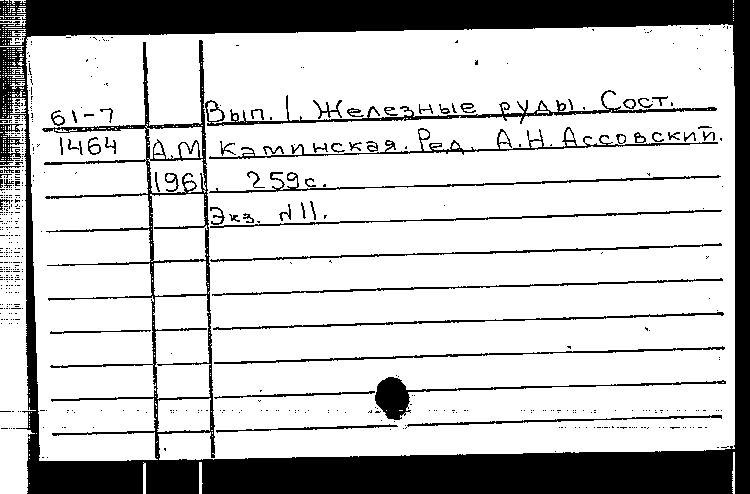 61-7 Вып. 1. Железные руды. Сост.
1464 А.М. Каминская. Ред. А.Н. Ассовский.
1961. 259с.
Экз. №11.